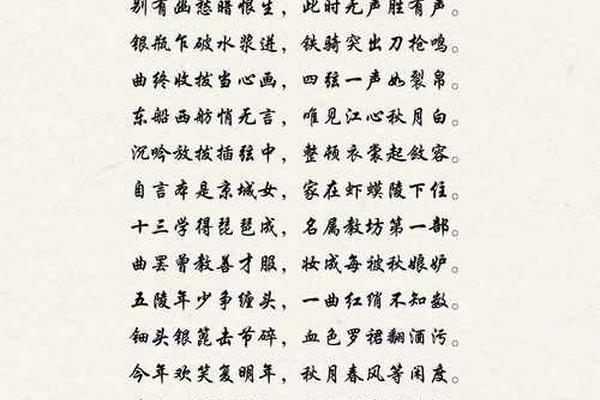 别有幽愁暗恨生，此时无声胜有声。
银瓶乍破水浆迸，铁骑突出刀枪鸣。
曲终收拔当心画，四弦一声如裂帛。
东船西舫悄无言，唯见江心秋月白。
沉吟放拔插弦中，整顿衣裳起敛容。
自言本是京城女，家在虾蟆陵下住。
十三学得琵琶成，名属教坊第一部。
曲罢曾教善才服，妆成每被秋娘妒。
五陵年少争缠头，一曲红绡不知数。
钿头银篦击节碎，血色罗裙翻酒污。
今年欢笑复明年，秋月春风等闲度。